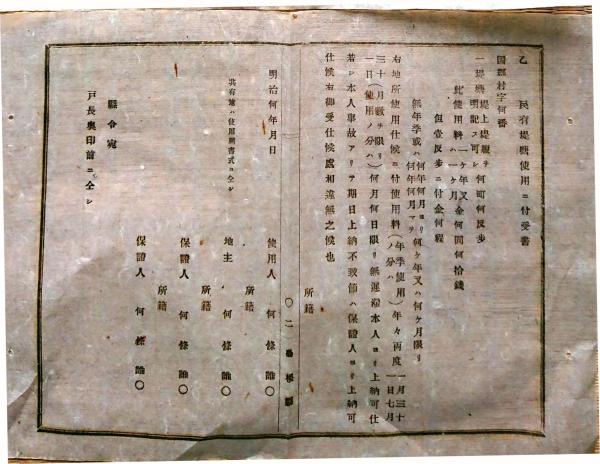 乙 民有堤塘使用ニ付受書
國郡村字何番
一堤塘 堤上堤腹ヲ明記スベシ 何町何反歩
此使用料 一ケ年又ハ一ケ月 金何圓何拾錢
但壹反歩ニ付金何程
無年季或ハ何年何月ヨリ何年何月マデ何ケ年又ハ何ケ月限リ
右地所使用仕候ニ付使用料(年季使用ノ分ハ)年々兩度一月三十一日七月
三十(月數ヲ限リ使用ノ分ハ)何月何日限リ無遲滯本人ヨリ上納可仕
若シ本人事故アリテ期日上納不致節ハ保證人ヨリ上納可
仕候右御受仕候處相違無之候也
所籍
明治何年月日
使用人 何條誰〇
所籍
共有地ハ使用願書式ニ仝シ
地主 何條誰〇
所籍
保證人 何條誰〇
所籍
保證人 何條誰〇
縣令宛
戸長奥印前ニ仝シ